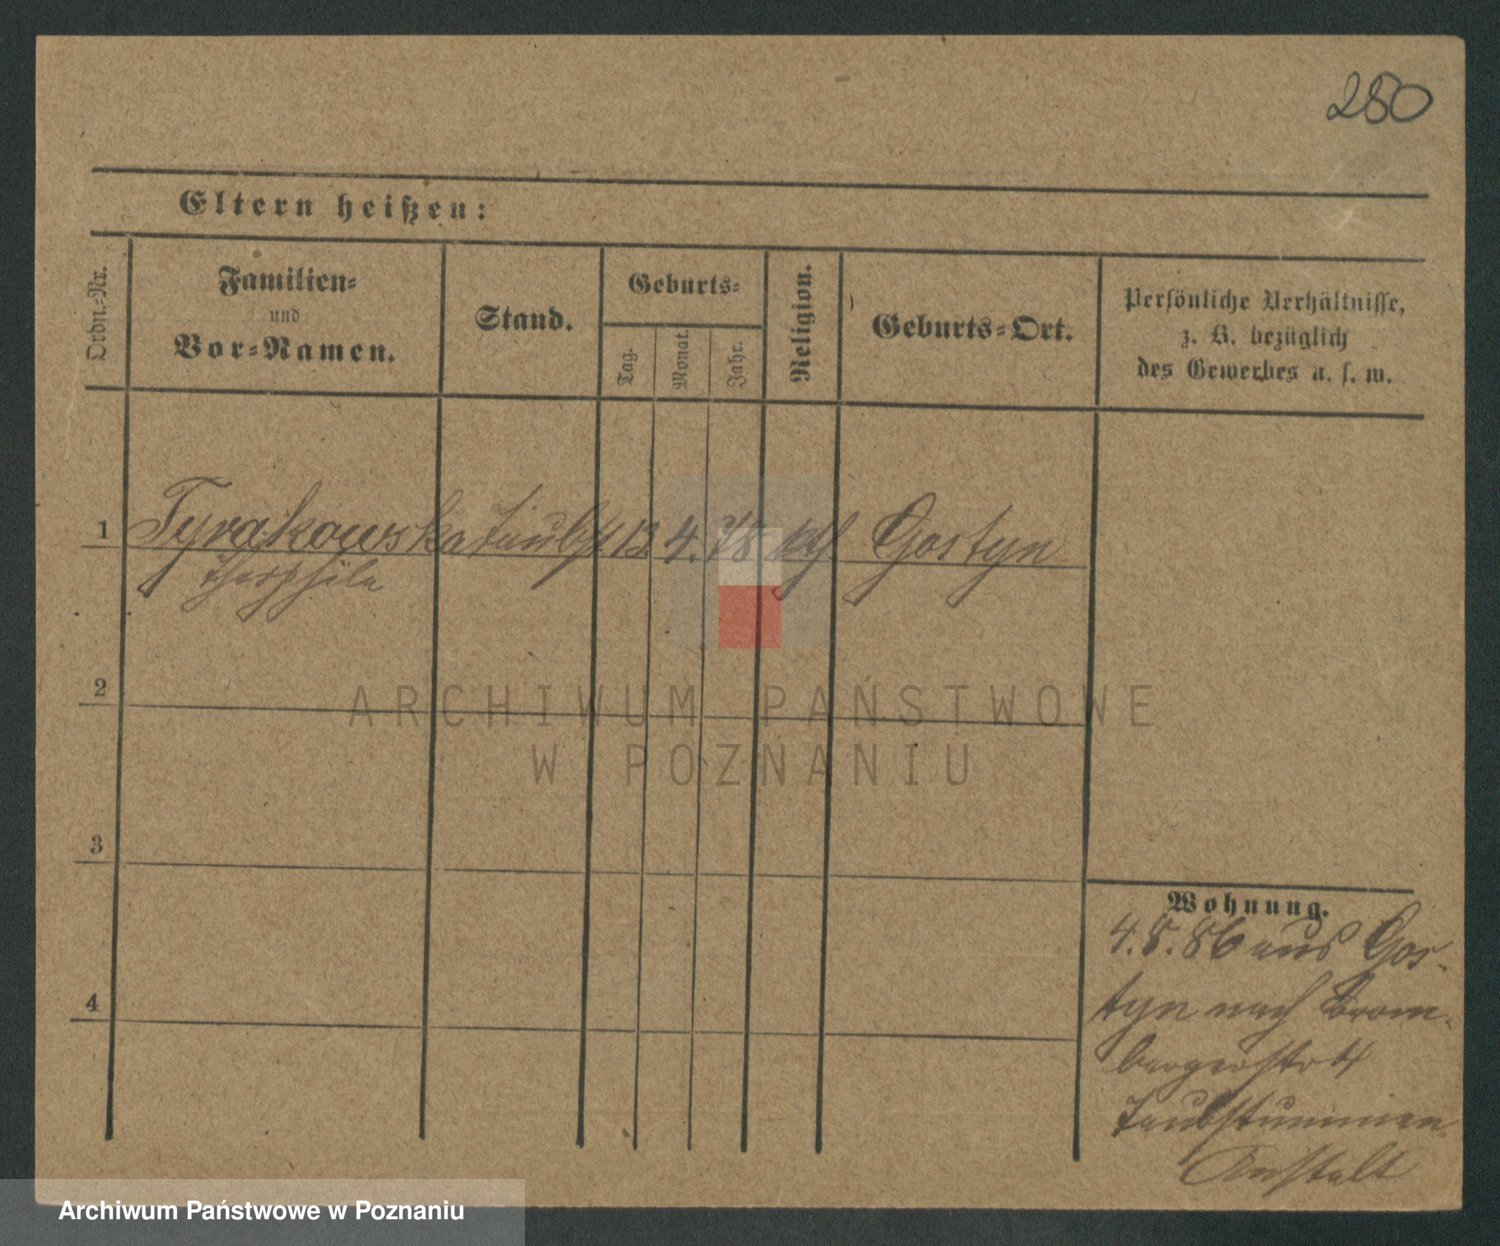 280
Eltern heißen:
Ordn.-Nr.
Familien-
und
Vor-Namen.
Stand.
Geburts-
Tag.
Monat.
Jahr.
Religion.
Geburts-Ort.
Persönliche Verhältnisse,
z. B. bezüglich
des Gewerbes u. s. w.
1 Tyrakowska Taubst 13. 4. 78 kth Gostyn
Theophila
2
3
4
Wohnung.
4. 8. 86 aus Gos-
tyn nach Brom-
bergerstr
Taubstummen
Anstalt
ARCHIWUM PAŃSTWOWE
W POZNANIU
Archiwum Państwowe w Poznaniu